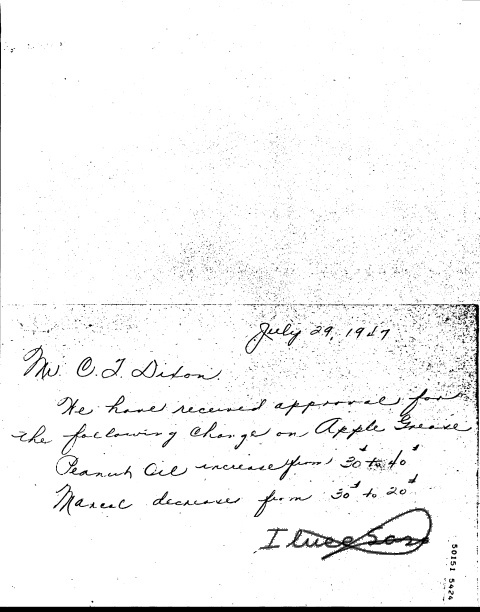 July 29, 1947
Mr C. T. Dixon.
We have received approval for
the following change on Apple Grease
Peanut Oil increase from 30# to 40#
decrease from 30# to 20#
50151 5424